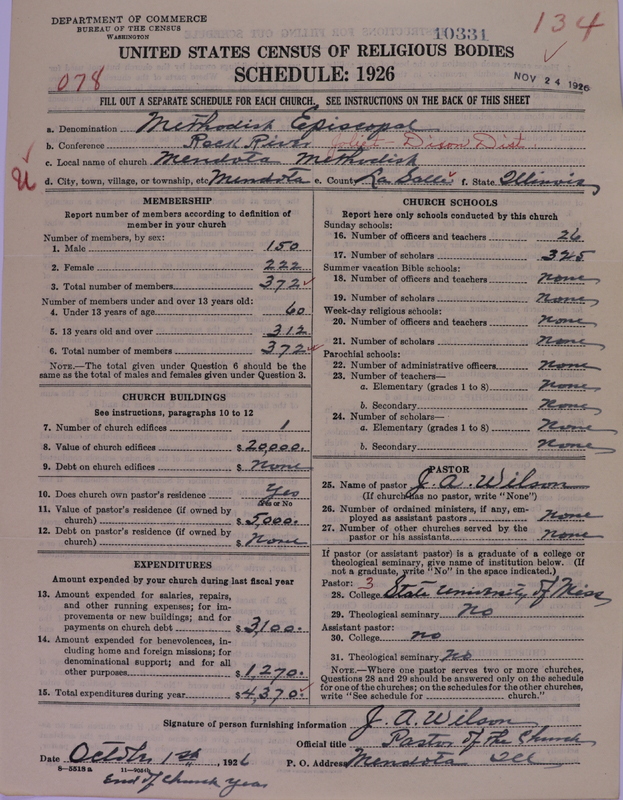 DEPARTMENT OF COMMERCE
BUREAU OF THE CENSUS
WASHINGTON
10331
134
UNITED STATES CENSUS OF RELIGIOUS BODIES
SCHEDULE: 1926
078
NOV 24 1926
FILL OUT A SEPARATE SCHEDULE FOR EACH CHURCH. SEE INSTRUCTIONS ON THE BACK OF THIS SHEET
a. Denomination Methodist Episcopal
b. Conference Rock River Joliet-Dixon Dist.
c. Local name of church Mendota Methodist
d. City, town, village, or township, etc Mendota e. County La Salle f. State Illinois
MEMBERSHIP
Report number of members according to definition of
member in your church
Number of members, by sex:
1. Male 150
2. Female 222
3. Total number of members 372
Number of members under and over 13 years old:
4. Under 13 years of age 60
5. 13 years old and over 312
6. Total number of members 372
NOTE.—The total given under Question 6 should be
the same as the total of males and females given under Question 3.
CHURCH BUILDINGS
See instructions, paragraphs 10 to 12
7. Number of church edifices 1
8. Value of church edifices $ 20,000.
9. Debt on church edifices $ None
10. Does church own pastor's residence Yes
Yes or No
11. Value of pastor's residence (if owned by
church) $ 5,000.
12. Debt on pastor's residence (if owned by
church) $ None
EXPENDITURES
Amount expended by your church during last fiscal year
13. Amount expended for salaries, repairs,
and other running expenses; for im-
provements or new buildings; and for
payments on church debt $ 3,100.
14. Amount expended for benevolences, in-
cluding home and foreign missions; for
denominational support; and for all
other purposes $ 1,270.
15. Total expenditures during year $ 4,370.
CHURCH SCHOOLS
Report here only schools conducted by this church
Sunday schools:
16. Number of officers and teachers 26
17. Number of scholars 325
Summer vacation Bible schools:
18. Number of officers and teachers none
19. Number of scholars none
Week-day religious schools:
20. Number of officers and teachers none
21. Number of scholars none
Parochial schools:
22. Number of administrative officers none
23. Number of teachers—
a. Elementary (grades 1 to 8) none
b. Secondary none
24. Number of scholars—
a. Elementary (grades 1 to 8) none
b. Secondary none
PASTOR
25. Name of pastor J. A. Wilson
(If church has no pastor, write "None")
26. Number of ordained ministers, if any, em-
ployed as assistant pastors none
27. Number of other churches served by the
pastor or his assistants none
If pastor (or assistant pastor) is a graduate of a college or
theological seminary, give name of institution below. (If
not a graduate, write "No" in the space indicated.)
Pastor: 3
28. College State University of Miss
29. Theological seminary no
Assistant pastor:
30. College no
31. Theological seminary no
NOTE.—Where one pastor serves two or more churches,
Questions 28 and 29 should be answered only on the schedule
for one of the churches; on the schedules for the other churches,
write "See schedule for church."
Signature of person furnishing information J. A. Wilson
Official title Pastor of the Church
Date October 1st, 1926 P. O. Address Mendota Ill
8—5518a
End of Church Year